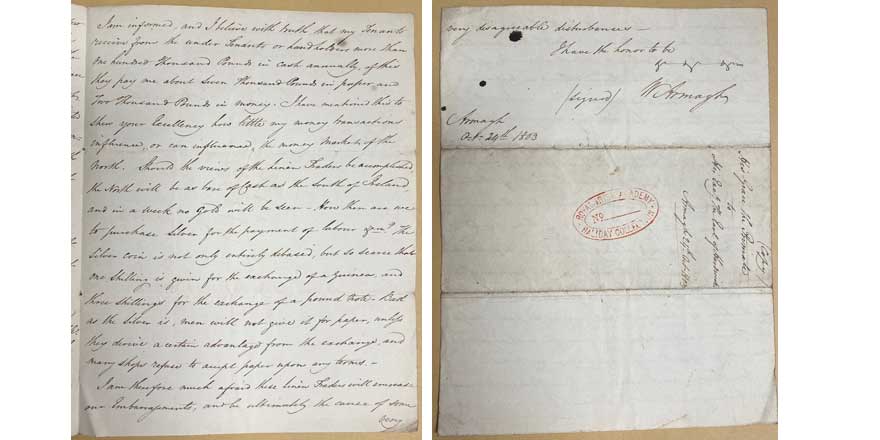 I am informed, and I believe with truth that my Tenants
receive from the under Tenants or landholders more than
One hundred Thousand Pounds in cash annually, of this
they pay me about Seven Thousand Pounds in paper and
Two Thousand Pounds in money. I have mentioned this to
shew your Excellency how little my money transactions
influence, or can influence, the money Markets of the
North. Should the views of the Linen Traders be accomplished
the North will be as bare of Cash as the South of Ireland
and in a week no Gold will be seen - How then are we
to purchase Silver for the payment of labour &ca? The
Silver coin is not only entirely debased, but so scarce that
one Shilling is given for the exchange of a Guinea, and
three Shillings for the exchange of a pound Note. Bad
as the Silver is, men will not give it for paper, unless
they derive a certain advantage from the exchange, and
many shops refuse to accept paper upon any terms. -
I am therefore much afraid these Linen Traders will
our Embarrassments, and be ultimately the cause of some
very
very disagreeable disturbances -
I have the honor to be
&c &c &c
(signed) W Armagh
Armagh
Oct. 24th 1803
ROYAL IRISH ACADEMY
No
HALIDAY COLLECTION
(Copy)
His Grace the Primate
to
His Excy the Earl of Hardwicke
Armagh 24th Octr 1803